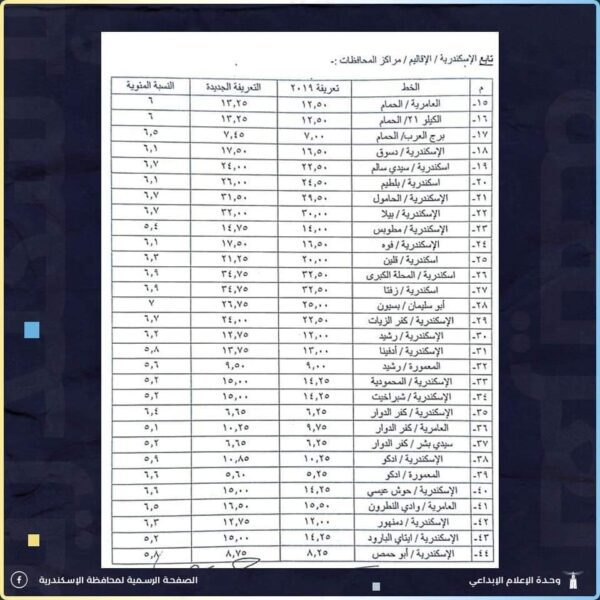 تابع الإسكندرية / الاقاليم / مراكز المحافظات :-
م الخط تعريفة ٢٠١٩ التعريفة الجديدة النسبة المئوية
١٥- العامرية / الحمام ١٢,٥٠ ١٣,٢٥ ٦
١٦- الكيلو ٢١/ الحمام ١٢,٥٠ ١٣,٢٥ ٦
١٧- برج العرب/ الحمام ٧,٠٠ ٧,٤٥ ٦,٥
١٨- الإسكندرية / دسوق ١٦,٥٠ ١٧,٥٠ ٦,١
١٩- اسكندرية / سيدي سالم ٢٢,٥٠ ٢٤,٠٠ ٦,٧
٢٠- اسكندرية / بلطيم ٢٤,٥٠ ٢٦,٠٠ ٦,١
٢١- الإسكندرية / الحامول ٢٩,٥٠ ٣١,٥٠ ٦,٧
٢٢- الإسكندرية / بيلا ٣٠,٠٠ ٣٢,٠٠ ٦,٧
٢٣- الإسكندرية / مطوبس ١٤,٠٠ ١٤,٧٥ ٥,٤
٢٤- الإسكندرية / فوه ١٦,٥٠ ١٧,٥٠ ٦,١
٢٥- اسكندرية / قلين ٢٠,٠٠ ٢١,٢٥ ٦,٣
٢٦- اسكندرية / المحلة الكبرى ٣٢,٥٠ ٣٤,٧٥ ٦,٩
٢٧- اسكندرية / زفتا ٣٢,٥٠ ٣٤,٧٥ ٦,٩
٢٨- أبو سليمان / بسيون ٢٥,٠٠ ٢٦,٧٥ ٧
٢٩- الإسكندرية / كفر الزيات ٢٢,٥٠ ٢٤,٠٠ ٦,٧
٣٠- الإسكندرية / رشيد ١٢,٠٠ ١٢,٧٥ ٦,٢
٣١- الإسكندرية / أدفينا ١٣,٠٠ ١٣,٧٥ ٥,٨
٣٢- المعمورة / رشيد ٩,٠٠ ٩,٥٠ ٥,٦
٣٣- الإسكندرية / المحمودية ١٤,٢٥ ١٥,٠٠ ٥,٢
٣٤- الإسكندرية / شبراخيت ١٤,٢٥ ١٥,٠٠ ٥,٢
٣٥- الإسكندرية / كفر الدوار ٦,٢٥ ٦,٦٥ ٦,٤
٣٦- العامرية / كفر الدوار ٩,٧٥ ١٠,٢٥ ٥,١
٣٧- سيدي بشر / كفر الدوار ٦,٢٥ ٦,٦٥ ٥,٢
٣٨- الإسكندرية / ادكو ١٠,٢٥ ١٠,٨٥ ٥,٩
٣٩- المعمورة / ادكو ٥,٢٥ ٥,٦٠ ٦,٦
٤٠- الإسكندرية / حوش عيسي ١٤,٢٥ ١٥,٠٠ ٦,٦
٤١- العامرية / وادي النطرون ١٥,٥٠ ١٦,٥٠ ٦,٥
٤٢- الإسكندرية / دمنهور ١٢,٠٠ ١٢,٧٥ ٦,٣
٤٣- الإسكندرية / ايتاي البارود ١٤,٢٥ ١٥,٠٠ ٥,٢
٤٤- الإسكندرية / أبو حمص ٨,٢٥ ٨,٧٥ ٥,٨
وحدة الإعلام الإبداعي
الصفحة الرسمية لمحافظة الإسكندرية